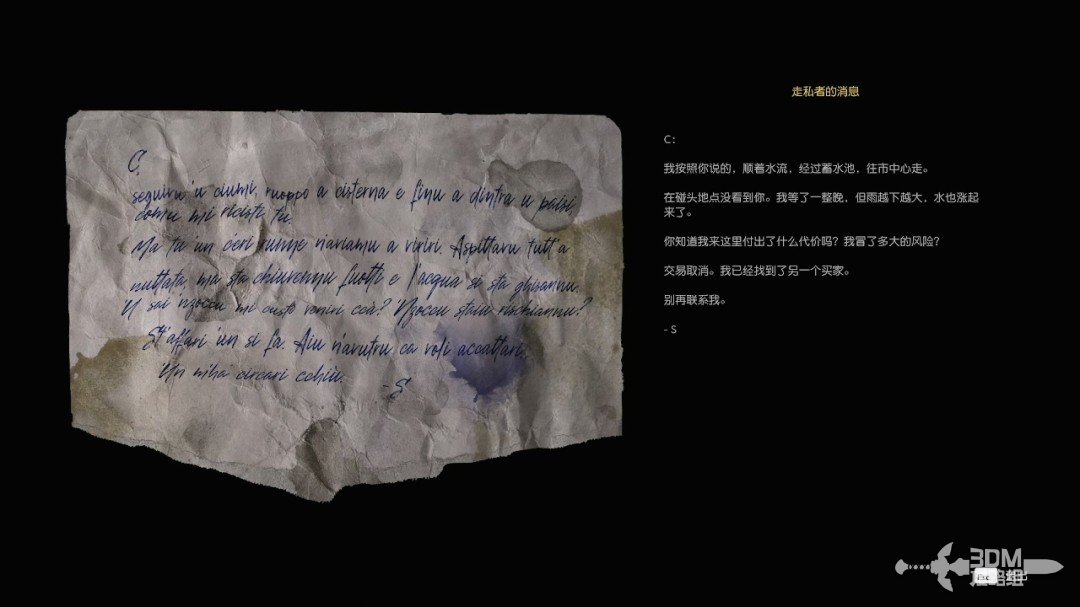 C,
seguivu 'u ciumi, ruoppo a cisterna e finu a dintra u paisi,
comu mi ricisti tu.
Ma tu un c'eri runne n'aviamu a viriri. Aspittavu tutt'a
nuttata, ma sta chiuvennu fuotti e l'acqua si sta ghisannu.
U sai nzoccu mi custò veniri ccà? Nzoccu staiu rischiannu?
St'affari 'un si fa. Aiu n'avutru ca voli accattari.
'Un mihai circari cchiù.
-S
走私者的消息
C：
我按照你说的，顺着水流，经过蓄水池，往市中心走。
在碰头地点没看到你。我等了一整晚，但雨越下越大，水也涨起
来了。
你知道我来这里付出了什么代价吗？我冒了多大的风险？
交易取消。我已经找到了另一个买家。
别再联系我。
- S
3DM
Esc